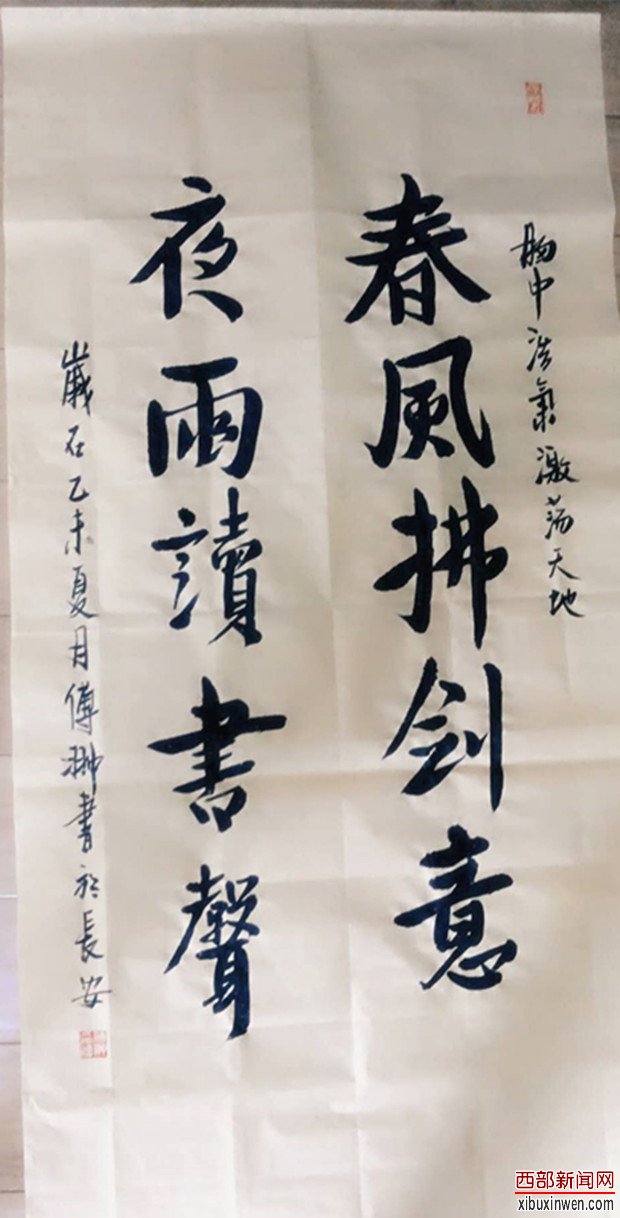 胸中浩氣激荡天地
春風拂剑意
夜雨讀書聲
歲在乙未夏月傅翀書於長安
西部新闻网
xibuxinwen.com